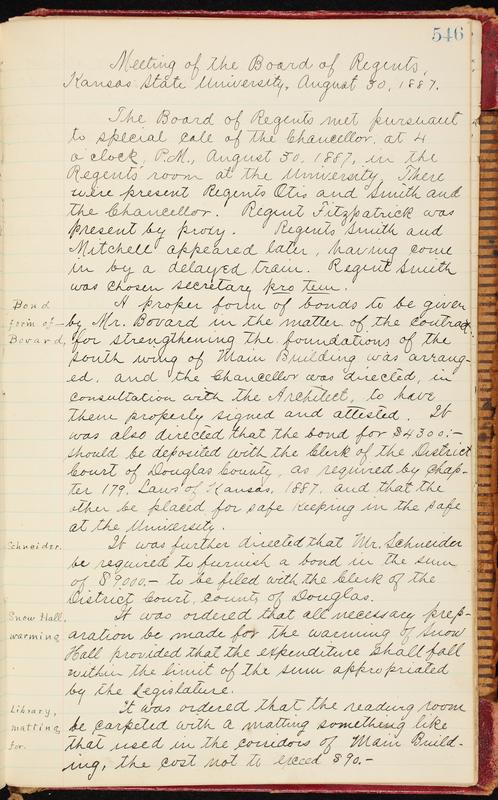 546
Meeting of the Board of Regents,
Kansas State University, August 30, 1887.
The Board of Regents met pursuant
to special call of the Chancellor, at 4
o'clock, P.M., August 30, 1887, in the
Regents' room at the University. There
were present Regents Otis and Smith and
the Chancellor. Regent Fitzpatrick was
present by proxy. Regents Smith and
Mitchell appeared later, having come
in by a delayed train. Regent Smith
was chosen secretary pro tem.
Bond
form of—
Bovard,
A proper form of bonds to be given
by Mr. Bovard in the matter of the contract
for strengthening the foundations of the
south wing of Main Building was arrang-
ed, and the Chancellor was directed, in
consultation with the Architect, to have
them properly signed and attested. It
was also directed that the bond for $4300.—
should be deposited with the Clerk of the District
Court of Douglas County, as required by chap-
ter 179, Laws of Kansas, 1887, and that the
other be placed for safe keeping in the safe
at the University.
Schneider.
It was further directed that Mr. Schneider
be required to furnish a bond in the sum
of $9000.— to be filed with the Clerk of the
District Court, county of Douglas.
Snow Hall,
warming
It was ordered that all necessary prep-
aration be made for the warming of Snow
Hall provided that the expenditure shall fall
within the limit of the sum appropriated
by the Legislature.
Library,
matting
for.
It was ordered that the reading room
be carpeted with a matting something like
that used in the corridors of Main Build-
ing, the cost not to exceed $90.—